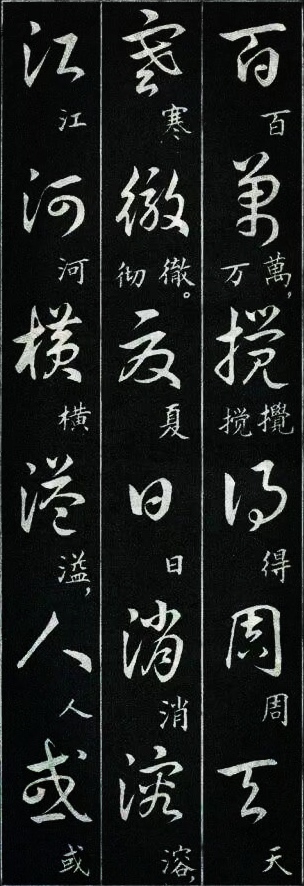 百萬攪得周天
百萬，攪得周天
万搅
寒徹夏日消溶
寒徹。夏日消溶，
彻
江河橫溢人或
江河橫溢，人或